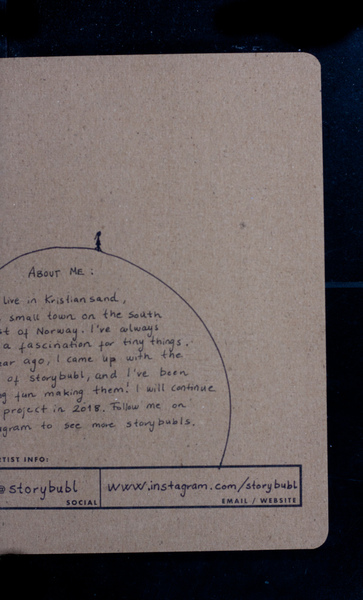 ABOUT ME:
live in Kristiansand,
small town on the south
st of Norway. I've always
a fascination for tiny things.
ear ago, I came up with the
of storybubl, and I've been
g fun making them! I will continue
project in 2018. Follow me on
agram to see more storybubls.
TIST INFO:
@storybubl
www.instagram.com/storybubl
SOCIAL
EMAIL / WEBSITE